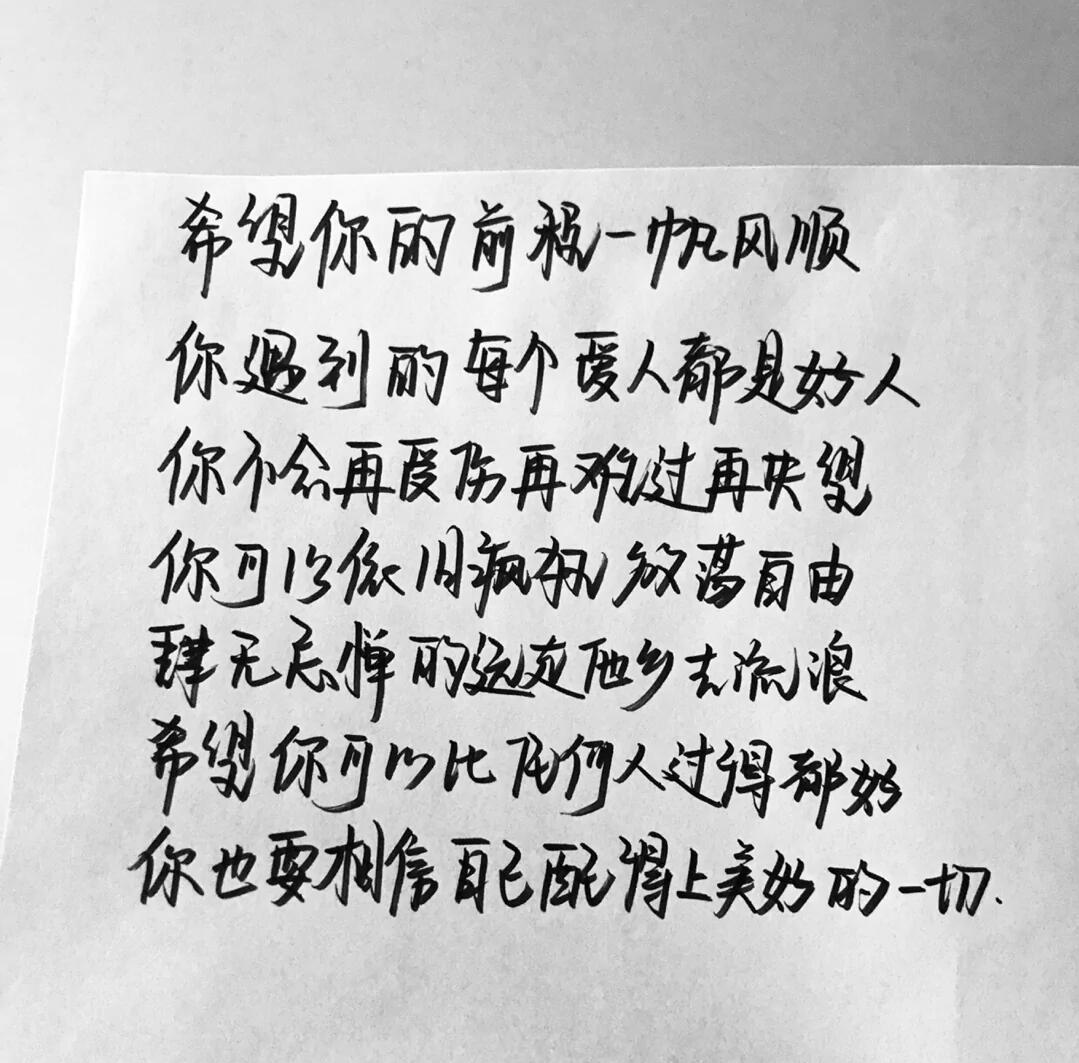 希望你的前程一帆风顺
你遇到的每个爱人都是好人
你不会再受伤再难过再失望
你可以依旧疯狂放荡自由
肆无忌惮的远走他乡去流浪
希望你可以比任何人过得都好
你也要相信自己配得上美好的一切.